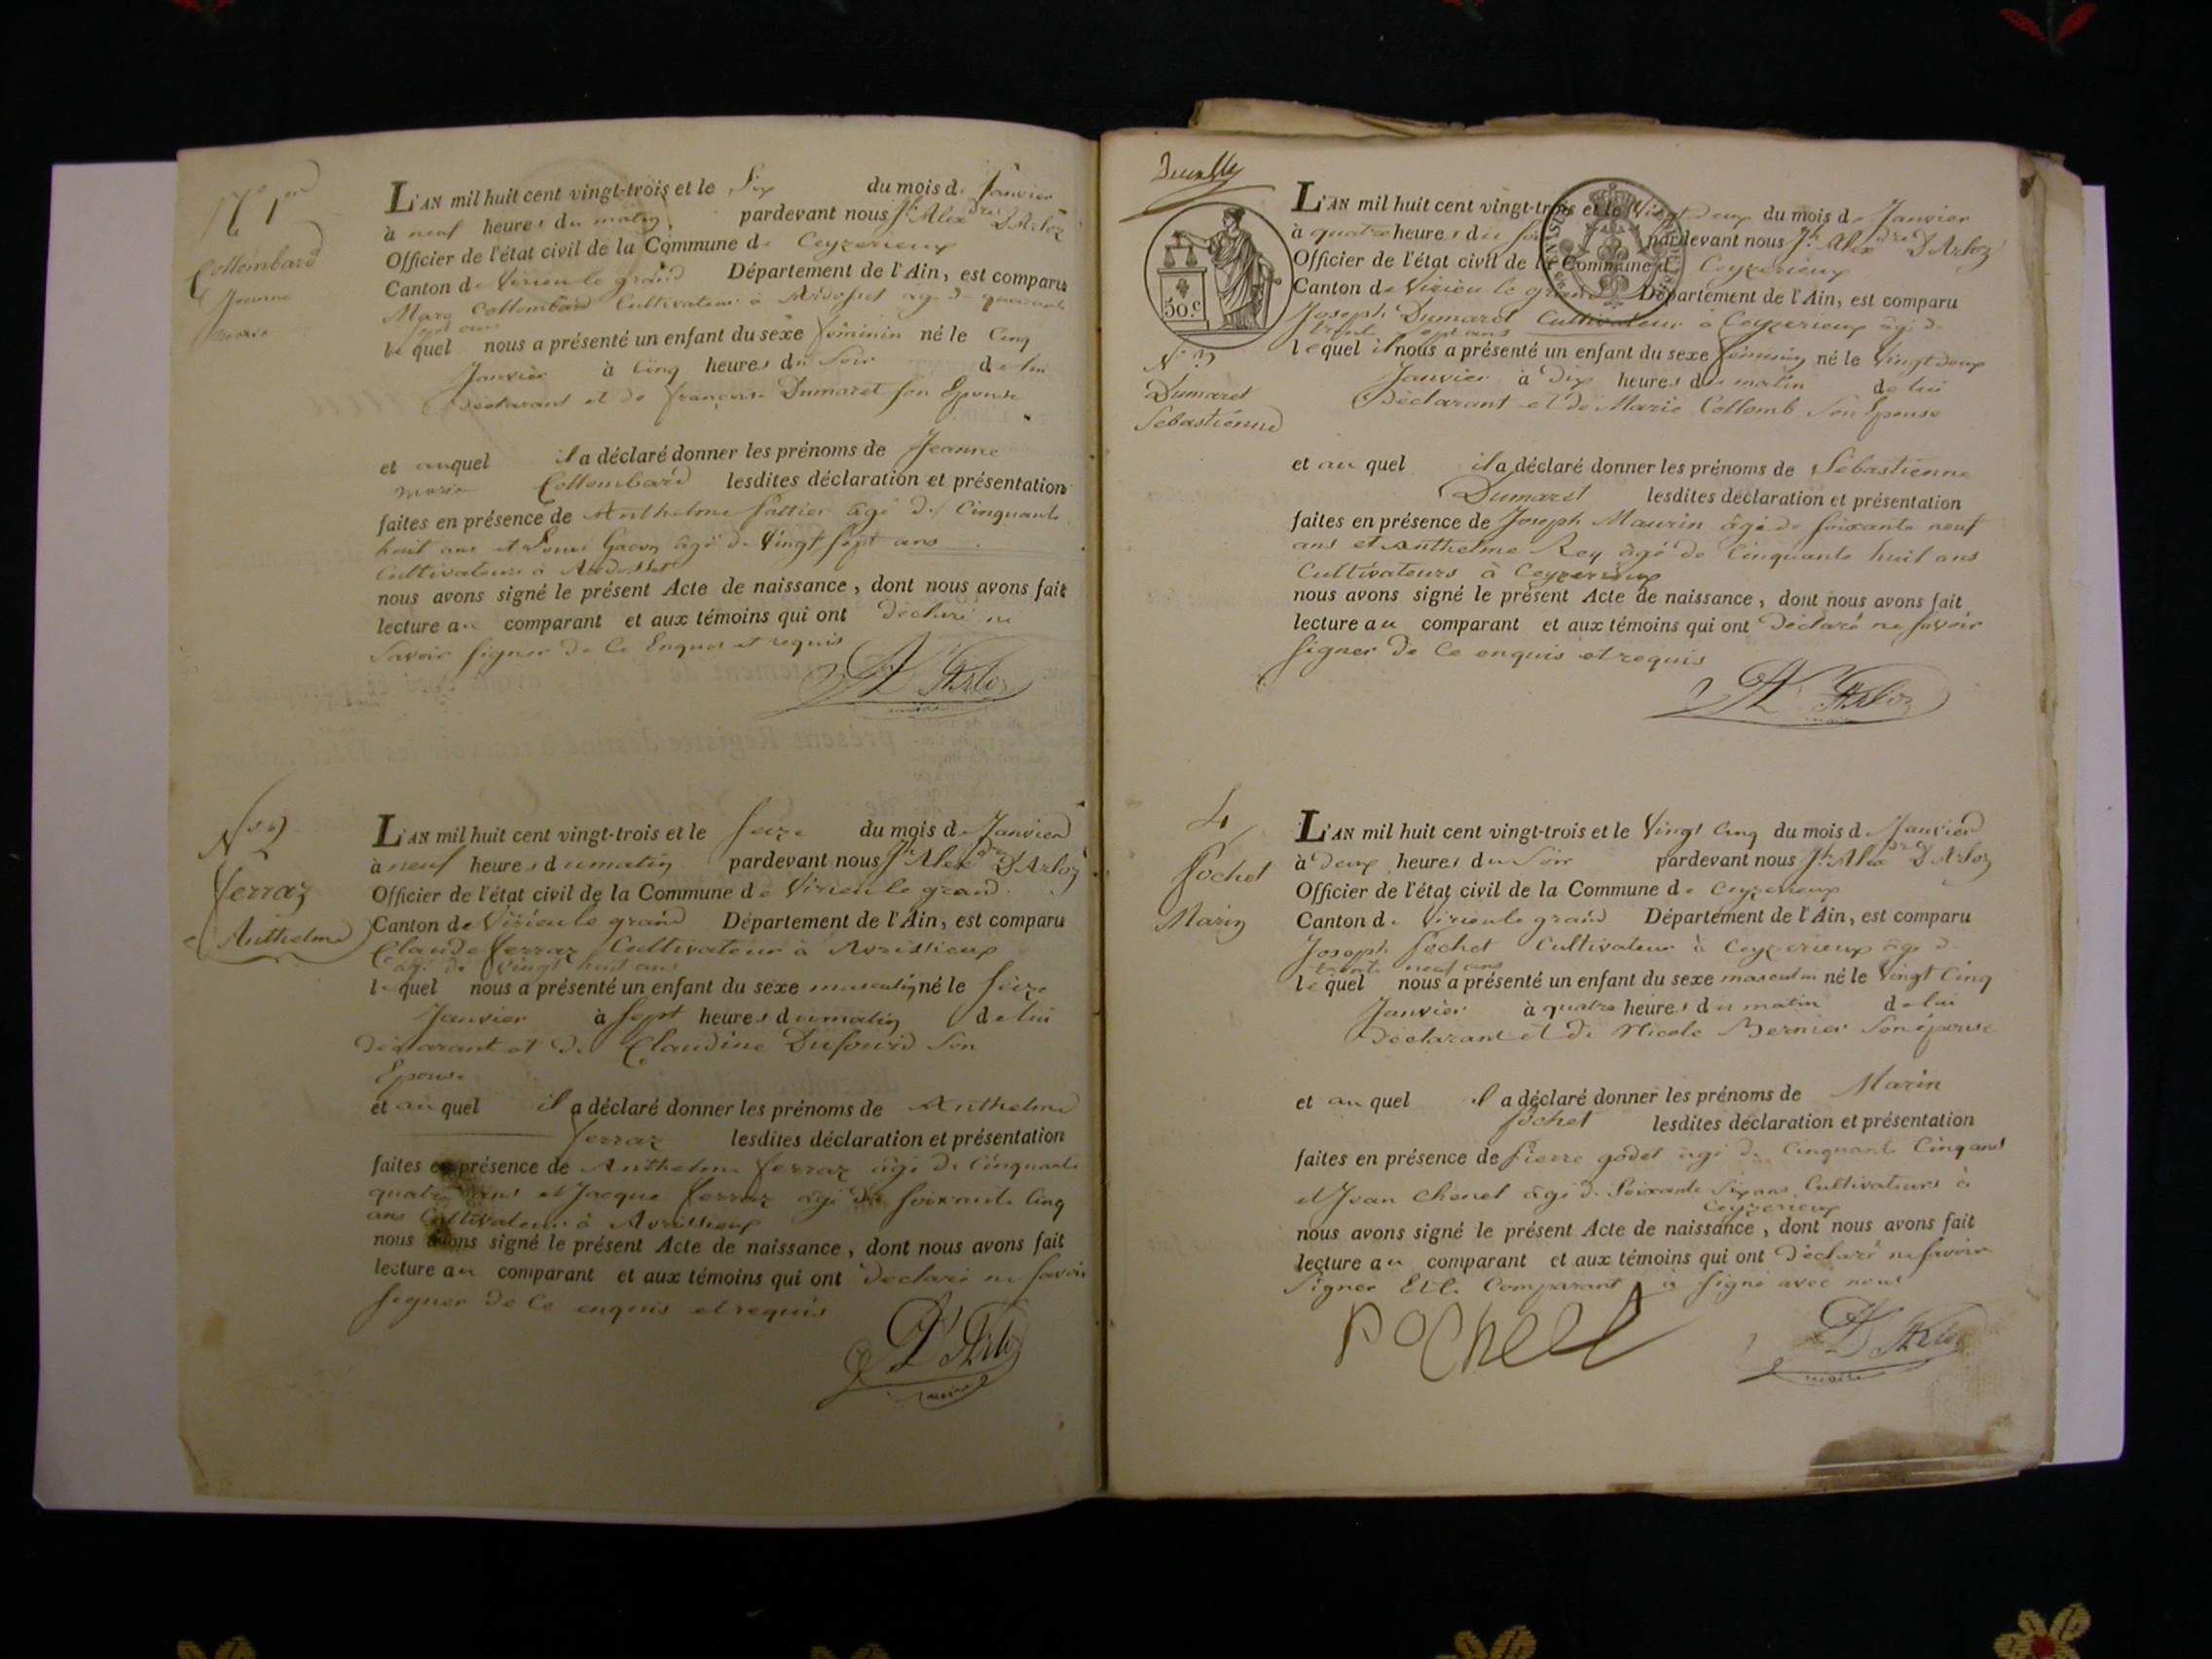 N° 1er
Collombard
Jeanne
Marie
L'AN mil huit cent vingt-trois et le Six du mois de Janvier
à neuf heures du matin pardevant nous Jh Alexdre D'Arloz
Officier de l'état civil de la Commune de Ceyzerieux
Canton de Virieu le grand Département de l'Ain, est comparu
Marc Collombard Cultivateur à Ardosset âgé de quarante
sept ans
lequel nous a présenté un enfant du sexe féminin né le Cinq
Janvier à Cinq heures du Soir de lui
Déclarant et de françoise Dumaret son Epouse
et auquel il a déclaré donner les prénoms de Jeanne
marie Collombard lesdites déclaration et présentation
faites en présence de Anthelme âgé de Cinquante
huit ans et Gacon âgé de Vingt sept ans
Cultivateurs à Ardosset
nous avons signé le présent Acte de naissance, dont nous avons fait
lecture au comparant et aux témoins qui ont déclaré ne
Savoir signer de Ce Enquis et requis
D'Arloz
maire
N° 2
ferraz
Anthelme
L'AN mil huit cent vingt-trois et le Seize du mois de Janvier
à neuf heures du matin pardevant nous Jh Alexdre D'Arloz
Officier de l'état civil de la Commune de Virieu le grand
Canton de Virieu le grand Département de l'Ain, est comparu
Claude ferraz Cultivateur à Avrissieux
âgé de vingt huit ans
lequel nous a présenté un enfant du sexe masculin né le Seize
Janvier à Sept heures du matin de lui
déclarant et de Claudine Dufourd Son
Epouse
et auquel il a déclaré donner les prénoms de Anthelme
ferraz lesdites déclaration et présentation
faites en présence de Anthelme ferraz âgé de Cinquante
quatre ans et Jacque ferraz âgé de Soixante Cinq
ans Cultivateurs à Avrissieux
nous avons signé le présent Acte de naissance, dont nous avons fait
lecture au comparant et aux témoins qui ont déclaré ne Savoir
signer de Ce enquis et requis
D'Arloz
maire
50.c
N° 3
Dumaret
Sebastienne
L'AN mil huit cent vingt-trois et le Vingt deux du mois de Janvier
à quatre heures du soir pardevant nous Jh Alexdre D'Arloz
Officier de l'état civil de la Commune de Ceyzerieux
Canton de Virieu le grand Département de l'Ain, est comparu
Joseph Dumaret Cultivateur à Ceyzerieux âgé de
trente sept ans
lequel il nous a présenté un enfant du sexe féminin né le Vingt deux
Janvier à Dix heures du matin de lui
Déclarant et de Marie Collomb Son Epouse
et au quel il a déclaré donner les prénoms de Sébastienne
Dumaret lesdites déclaration et présentation
faites en présence de Joseph Maurin âgé de soixante neuf
ans et Anthelme Rey âgé de Cinquante huit ans
Cultivateurs à Ceyzerieux
nous avons signé le présent Acte de naissance, dont nous avons fait
lecture au comparant et aux témoins qui ont Déclaré ne savoir
signer de Ce enquis et requis
D'Arloz
maire
4
Pochet
Marin
L'AN mil huit cent vingt-trois et le Vingt Cinq du mois de Janvier
à Deux heures du Soir pardevant nous Jh Alexdre D'Arloz
Officier de l'état civil de la Commune de Ceyzerieux
Canton de Virieu le grand Département de l'Ain, est comparu
Joseph Pochet Cultivateur à Ceyzerieux âgé de
trente neuf ans
lequel nous a présenté un enfant du sexe masculin né le Vingt Cinq
Janvier à quatre heures du matin de lui
Déclarant et de Nicole Bernier Son épouse
et au quel il a déclaré donner les prénoms de Marin
Pochet lesdites déclaration et présentation
faites en présence de Pierre godet âgé de Cinquante Cinq ans
et Jean Chenel âgé de Soixante Six ans Cultivateurs à
Ceyzerieux
nous avons signé le présent Acte de naissance, dont nous avons fait
lecture au comparant et aux témoins qui ont Déclaré ne savoir
Signer Et le Comparant à signé avec nous
pochet
D'Arloz
maire